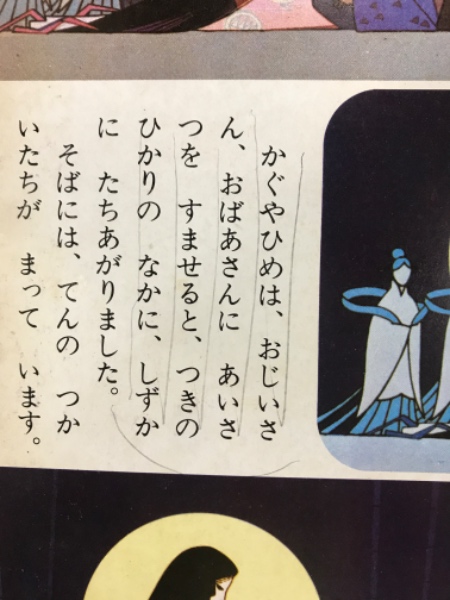 かぐやひめは、おじいさ
ん、おばあさんに　あいさ
つを　すませると、つきの
ひかりの　なかに、しずか
に　たちあがりました。
そばには、てんの　つか
いたちが　まって　います。